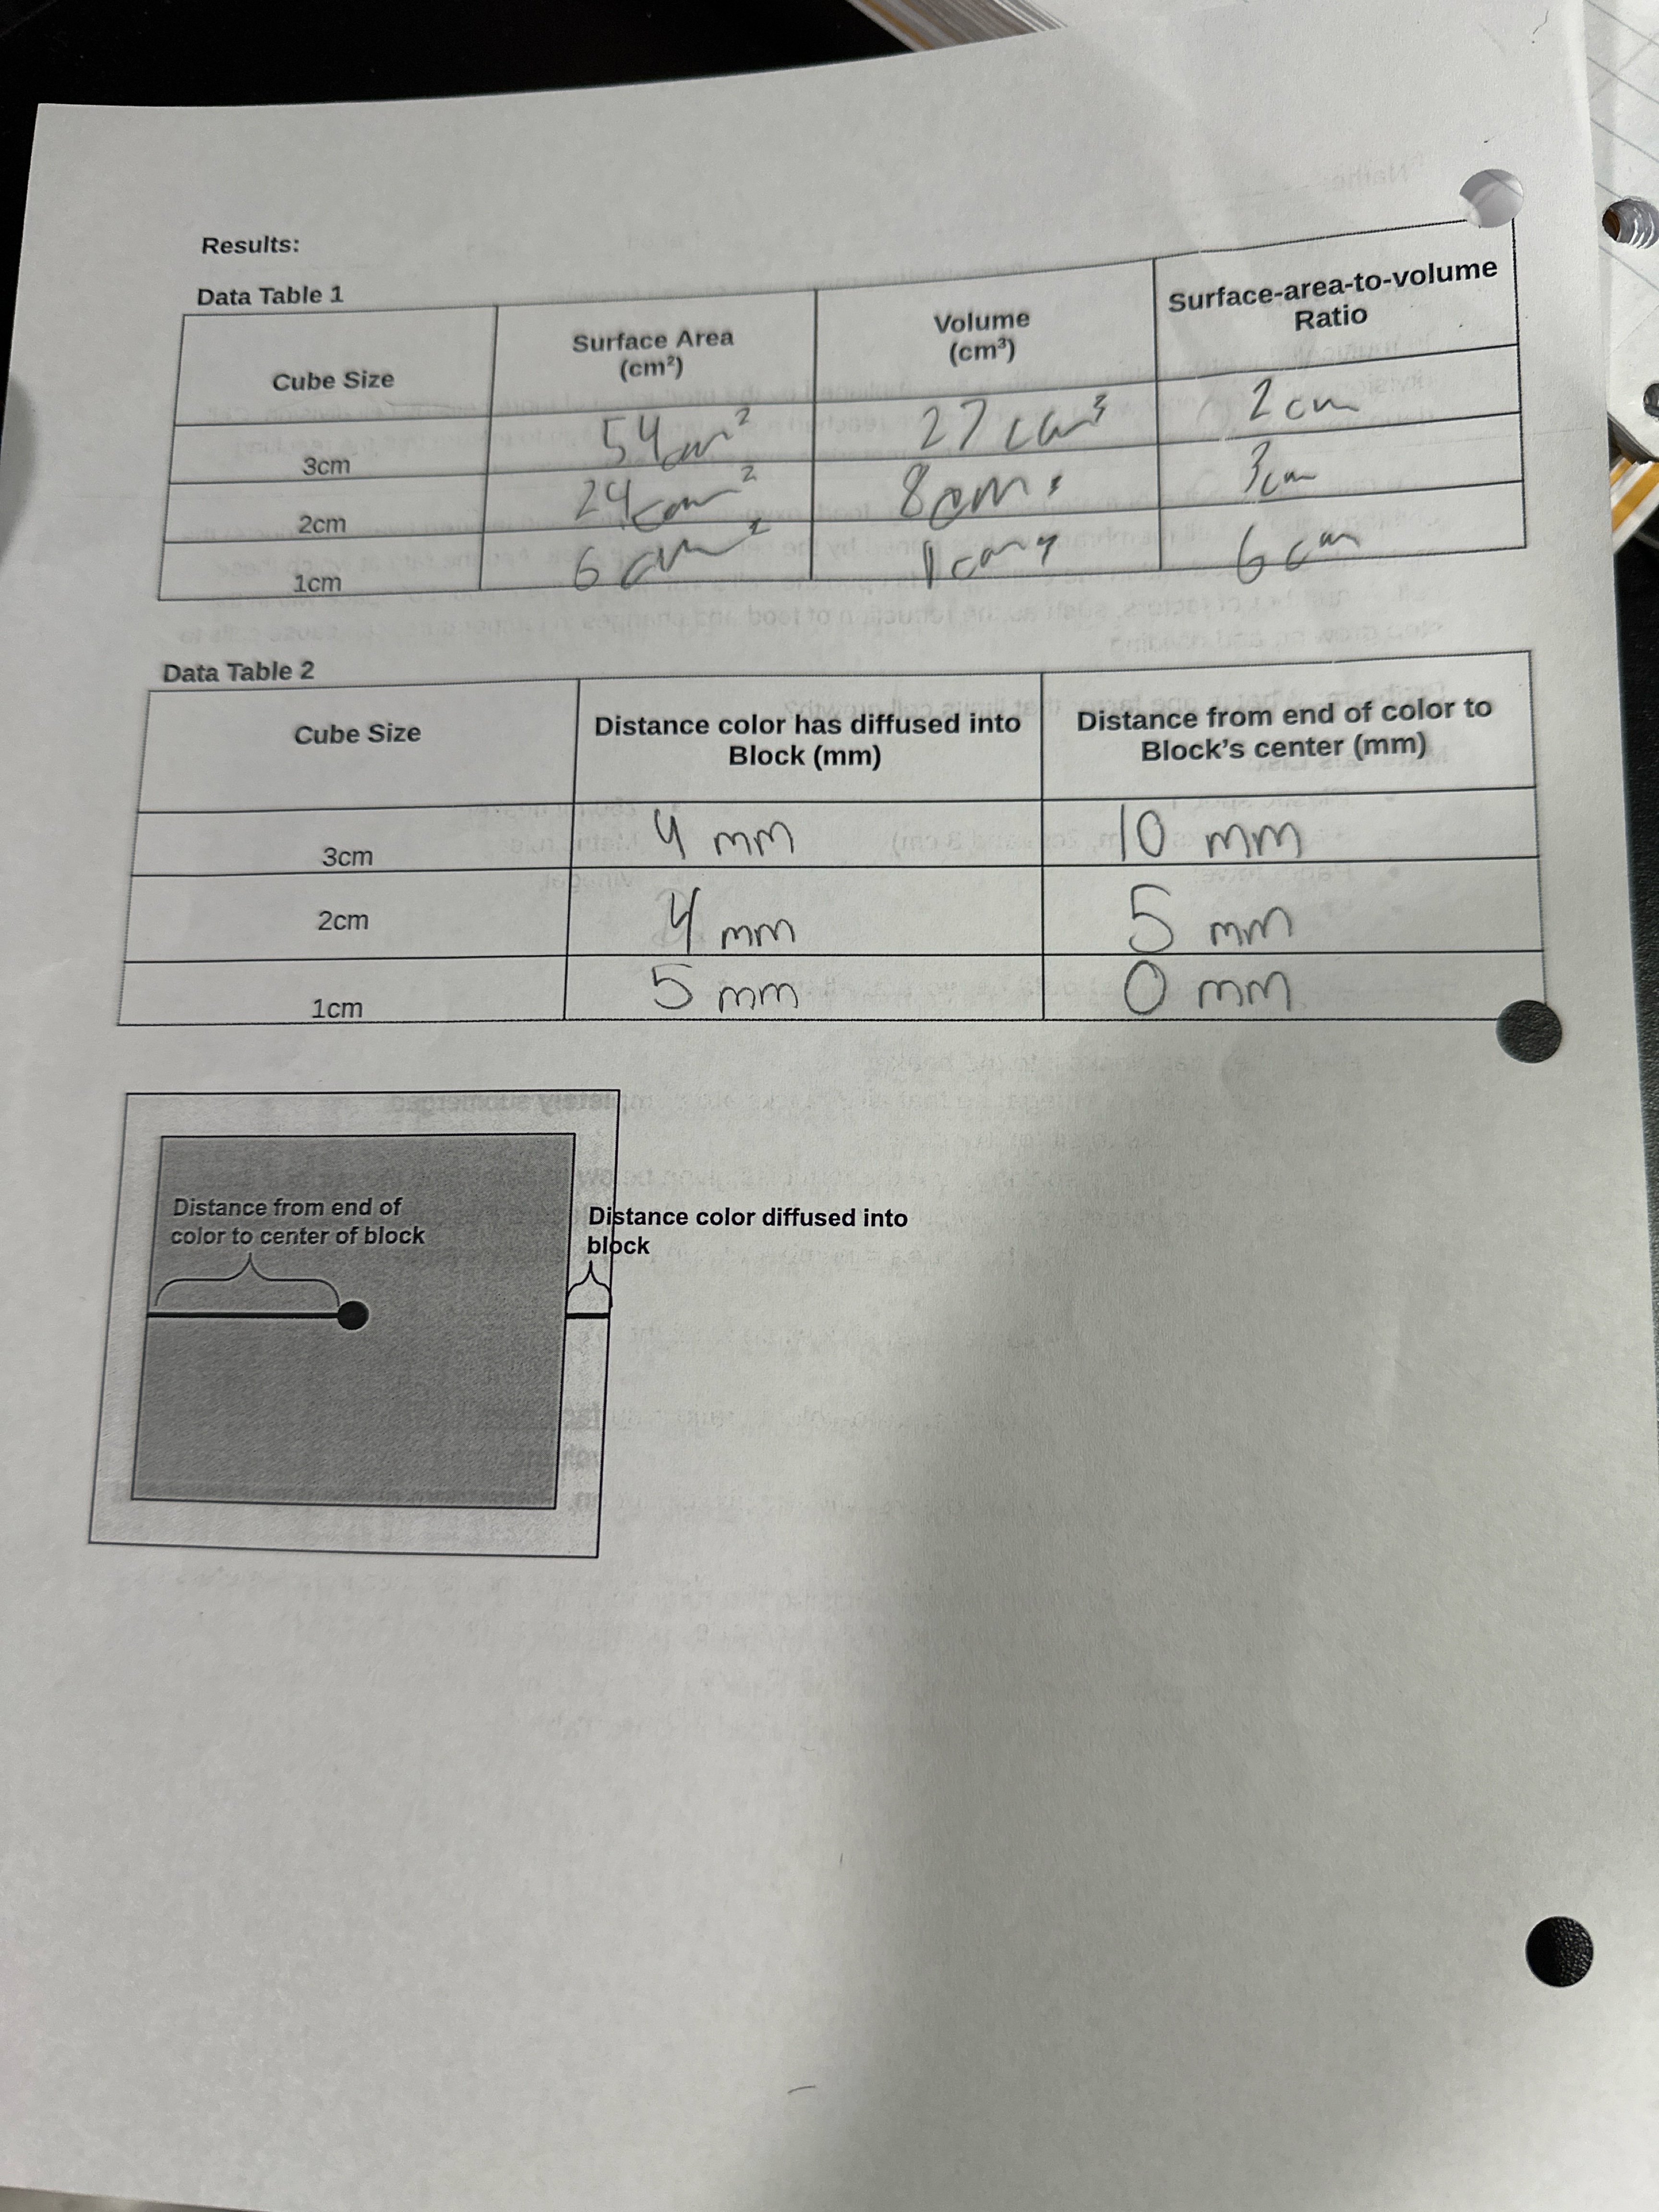 Results:
Data Table 1
Cube Size
Surface Area
(cm²)
Volume
(cm³)
Surface-area-to-volume
Ratio
3cm
54cm²
27 cm³
2 cm
2cm
24cm²
8cm³
3cm
1cm
6 cm²
1cm³
6 cm
Data Table 2
Cube Size
Distance color has diffused into
Block (mm)
Distance from end of color to
Block's center (mm)
3cm
4 mm
10 mm
2cm
4 mm
5 mm
1cm
5 mm
0 mm
Distance from end of
color to center of block
Distance color diffused into
block